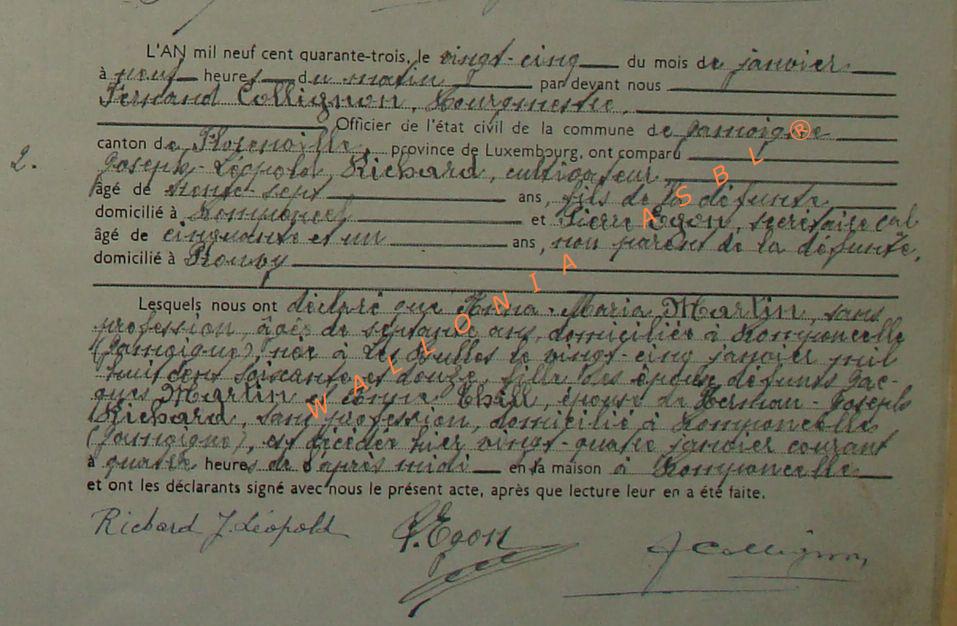 L'AN mil neuf cent quarante-trois, le vingt-cinq du mois de janvier
à neuf heures du matin par devant nous
Fernand Collignon, Bourgmestre,
Officier de l'état civil de la commune de Jamoigne
2.
canton de Florenville, province de Luxembourg, ont comparu
Joseph-Léopold Richard, cultivateur
âgé de trente-sept ans, fils de la défunte
domicilié à Romponcel et Pierre Egon, secrétaire cal
âgé de cinquante et un ans, non parent de la défunte,
domicilié à Prouvy
Lesquels nous ont déclaré que Anna-Maria Marlin, sans
profession âgée de septante ans, domiciliée à Romponcelle
(Jamoigne), née à Les Bulles le vingt-cinq janvier mil
huit cent soixante et douze, fille des époux défunts Jac-
ques Marlin et Thill, épouse de Herman-Joseph
Richard, sans profession, domicilié à Romponcelle
(Jamoigne), est décédée hier vingt-quatre janvier courant
à quatre heures de l'après midi en la maison à Romponcelle
et ont les déclarants signé avec nous le présent acte, après que lecture leur en a été faite.
Richard J. Léopold P. Egon F Collignon
WALLONIA ASBL ®